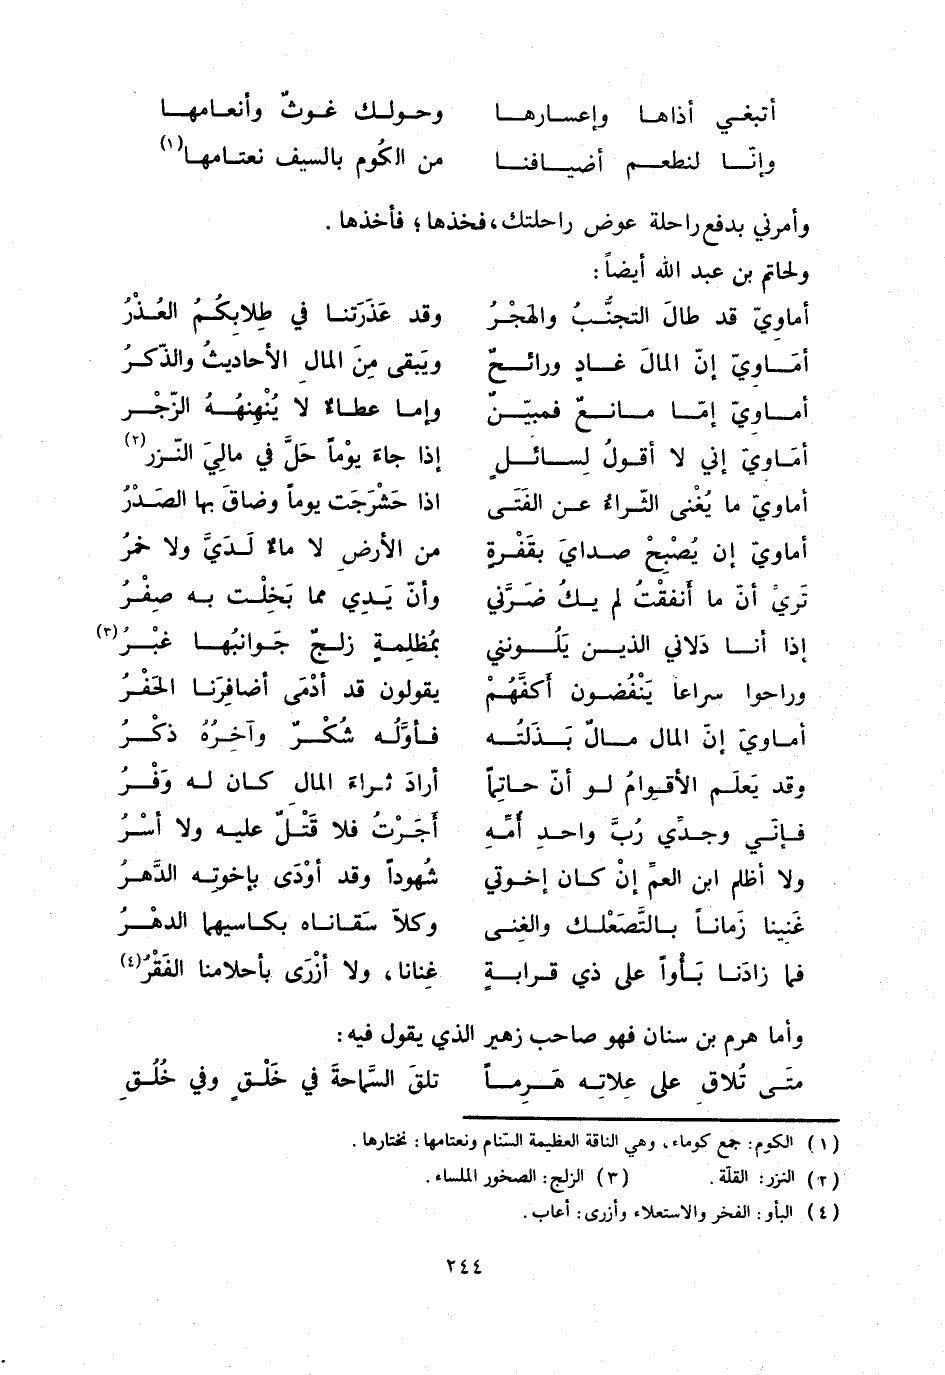 أتبغي أذاها وإعسارها وحولك غوثٌ وأنعامها
وإنّا لنطعم أضيافنا من الكُوم بالسيف نعتامها(١)
وأمرني بدفع راحلة عوض راحلتك، فخذها؛ فأخذها.
ولحاتم بن عبد الله أيضاً:
أماويّ قد طالَ التجنُّبُ والهَجْرُ وقد عَذَرَتنا في طِلابِكُمُ العُذْرُ
أمَاويّ إنّ المالَ غادٍ ورائحٌ ويَبقى مِنَ المال الأحاديثُ والذّكرُ
أماويّ إمّا مانعٌ فمبيّنٌ وإما عطاءٌ لا يُنْهنِهُهُ الزّجْر
أمَاويّ إني لا أقولُ لِسائلٍ إذا جاءَ يوْماً حَلَّ في مالِيَ النّزر(٢)
أماويّ ما يُغْني الثّراءُ عن الفَتَى اذا حَشْرَجَت يوماً وضاقَ بها الصَدْرُ
أماويّ إن يُصْبِحْ صدايَ بقَفْرةٍ من الأرضِ لا ماءٌ لَدَيَّ ولا خمرُ
تَرَيْ أنّ ما أَنفقْتُ لم يكُ ضَرَّني وأنّ يَدِي مما بَخِلْت به صِفْرُ
إذا أنا دَلاني الذين يَلُونني بمُظلِمةٍ زلجٌ جَوانبُها غبْرُ(٣)
وراحوا سراعا يَنْفُضون أَكفَّهُمْ يقولون قد أدْمَى أضافِرَنا الحَفْرُ
أماويّ إنّ المال مالٌ بَذَلتُه فأوَّلُه شُكْرٌ وآخِرُهُ ذكْرُ
وقد يَعلَم الأقوامُ لو أنّ حاتِماً أرادَ ثراءَ المالِ كان له وَفْرُ
فإنّي وجدِّي رُبَّ واحدِ أُمِّهِ أَجَرْتُ فلا قَتْلٌ عليه ولا أسْرُ
ولا أظلم ابن العمِّ إنْ كان إخوتي شُهوداً وقد أوْدَى بإخوتِه الدَّهرُ
غَنِينا زَماناً بالتَّصَعْلك والغِنى وكلاّ سَقاناه بكاسيهِا الدهْرُ
فما زادَنا بَأْواً على ذي قرابةٍ غِنانا، ولا أزْرَى بأحلامنا الفَقْرُ(٤)
وأما هرم بن سنان فهو صاحب زهير الذي يقول فيه:
متَى تُلاقِ على عِلاتِه هَرِماً تلقَ السَّماحةَ في خَلْقٍ وفي خُلُقِ
(١) الكوم: جمع كوماء، وهي الناقة العظيمة السّنام ونعتامها: نختارها.
(٢) النزر: القلّة. (٣) الزلج: الصخور الملساء.
(٤) البأو: الفخر والاستعلاء وأزرى: أعاب.
٢٤٤